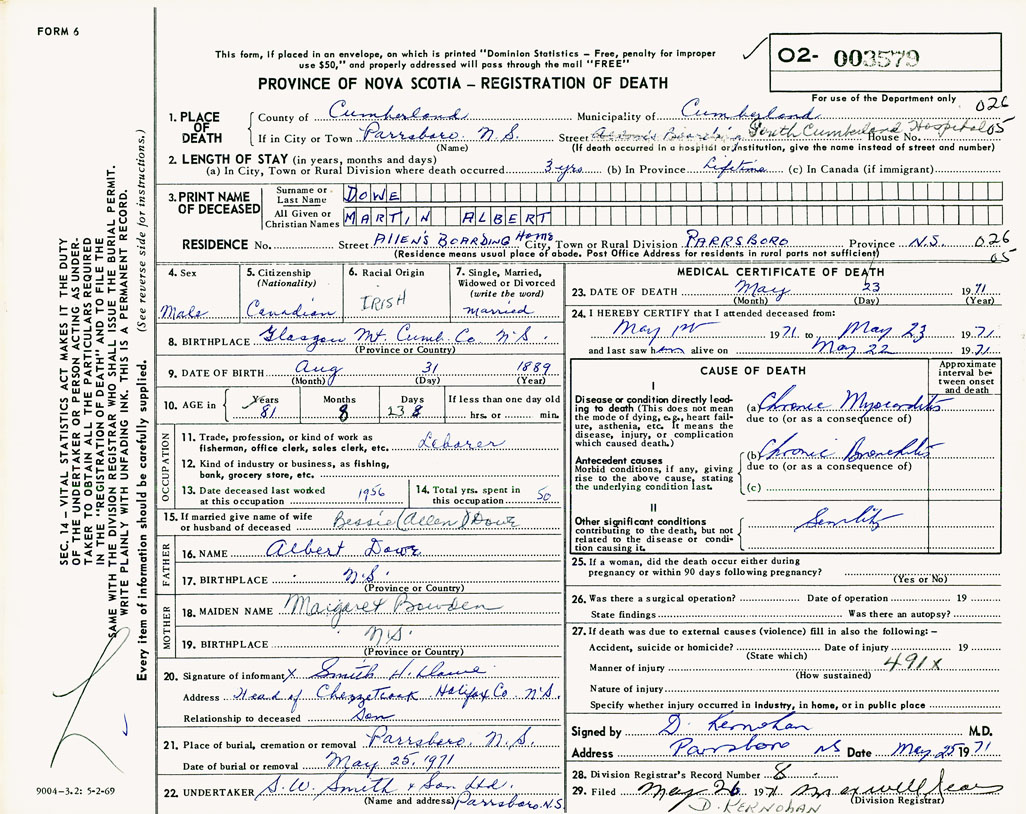 FORM 6
This form, if placed in an envelope, on which is printed "Dominion Statistics – Free, penalty for improper
use $50," and properly addressed will pass through the mail "FREE"
PROVINCE OF NOVA SCOTIA – REGISTRATION OF DEATH
02- 003579
For use of the Department only
026
05
1. PLACE OF DEATH
County of Cumberland Municipality of Cumberland
If in City or Town Parrsboro. N.S. Street South Cumberland Hospital House No.
(Name) (If death occurred in a hospital or institution, give the name instead of street and number)
2. LENGTH OF STAY (in years, months and days)
(a) In City, Town or Rural Division where death occurred 3 yrs (b) In Province Lifetime (c) In Canada (if immigrant)
3. PRINT NAME OF DECEASED
Surname or Last Name DOWE
All Given or Christian Names MARTIN ALBERT
RESIDENCE No. Street ALLEN'S BOARDING Home City, Town or Rural Division PARRSBORO Province N.S. 026
(Residence means usual place of abode. Post Office Address for residents in rural parts not sufficient) 05
4. Sex
Male
5. Citizenship
(Nationality)
Canadian
6. Racial Origin
IRISH
7. Single, Married,
Widowed or Divorced
(write the word)
married
8. BIRTHPLACE Glasgow Mt. Cumb. Co N'S.
(Province or Country)
9. DATE OF BIRTH Aug 31 1889
(Month) (Day) (Year)
10. AGE in
Years
81
Months
8
Days
238
If less than one day old
hrs. or min.
OCCUPATION
11. Trade, profession, or kind of work as
fisherman, office clerk, sales clerk, etc. Laborer
12. Kind of industry or business, as fishing,
bank, grocery store, etc.
13. Date deceased last worked
at this occupation 1956
14. Total yrs. spent in
this occupation 50
15. If married give name of wife
or husband of deceased Bessie (Allen) Dowe
FATHER
16. NAME Albert Dowe
17. BIRTHPLACE N.S.
(Province or Country)
MOTHER
18. MAIDEN NAME Margaret Bowden
19. BIRTHPLACE N.S.
(Province or Country)
20. Signature of informant X Smith H. Dowe
Address Head of Chezzetcook Halifax Co N'S.
Relationship to deceased Son
21. Place of burial, cremation or removal Parrsboro, N.S.
Date of burial or removal May 25, 1971
22. UNDERTAKER S.W. Smith & Son Ltd.
(Name and address) Parrsboro, N.S.
MEDICAL CERTIFICATE OF DEATH
23. DATE OF DEATH May 23 19 71
(Month) (Day) (Year)
24. I HEREBY CERTIFY that I attended deceased from:
May 1st 19 71 to May 23 19 71
and last saw him alive on May 22 19 71
CAUSE OF DEATH
Approximate interval between onset and death
I
Disease or condition directly leading to death (This does not mean the mode of dying, e.g., heart failure, asthenia, etc. It means the disease, injury, or complication which caused death.)
(a) Chronic Myocarditis
due to (or as a consequence of)
Antecedent causes
Morbid conditions, if any, giving rise to the above cause, stating the underlying condition last.
(b) Chronic Bronchitis
due to (or as a consequence of)
(c)
II
Other significant conditions
contributing to the death, but not related to the disease or condition causing it.
Senility
25. If a woman, did the death occur either during
pregnancy or within 90 days following pregnancy?
(Yes or No)
26. Was there a surgical operation? Date of operation 19
State findings Was there an autopsy?
27. If death was due to external causes (violence) fill in also the following:–
Accident, suicide or homicide? Date of injury 19
(State which)
Manner of injury 491x
(How sustained)
Nature of injury
Specify whether injury occurred in industry, in home, or in public place
Signed by D. Kernohan M.D.
Address Parrsboro NS Date May 25 19 71
28. Division Registrar's Record Number 8
29. Filed May 26 1971 Maxwell
(Division Registrar)
D. KERNOHAN
SEC. 14 – VITAL STATISTICS ACT MAKES IT THE DUTY
OF THE UNDERTAKER OR PERSON ACTING AS UNDER-
TAKER TO OBTAIN ALL THE PARTICULARS REQUIRED
IN THE "REGISTRATION OF DEATH" AND TO FILE THE
SAME WITH THE DIVISION REGISTRAR WHO SHALL ISSUE THE BURIAL PERMIT.
WRITE PLAINLY WITH UNFADING INK. THIS IS A PERMANENT RECORD.
Every item of information should be carefully supplied. (See reverse side for instructions.)
9004-3.2: 5-2-69